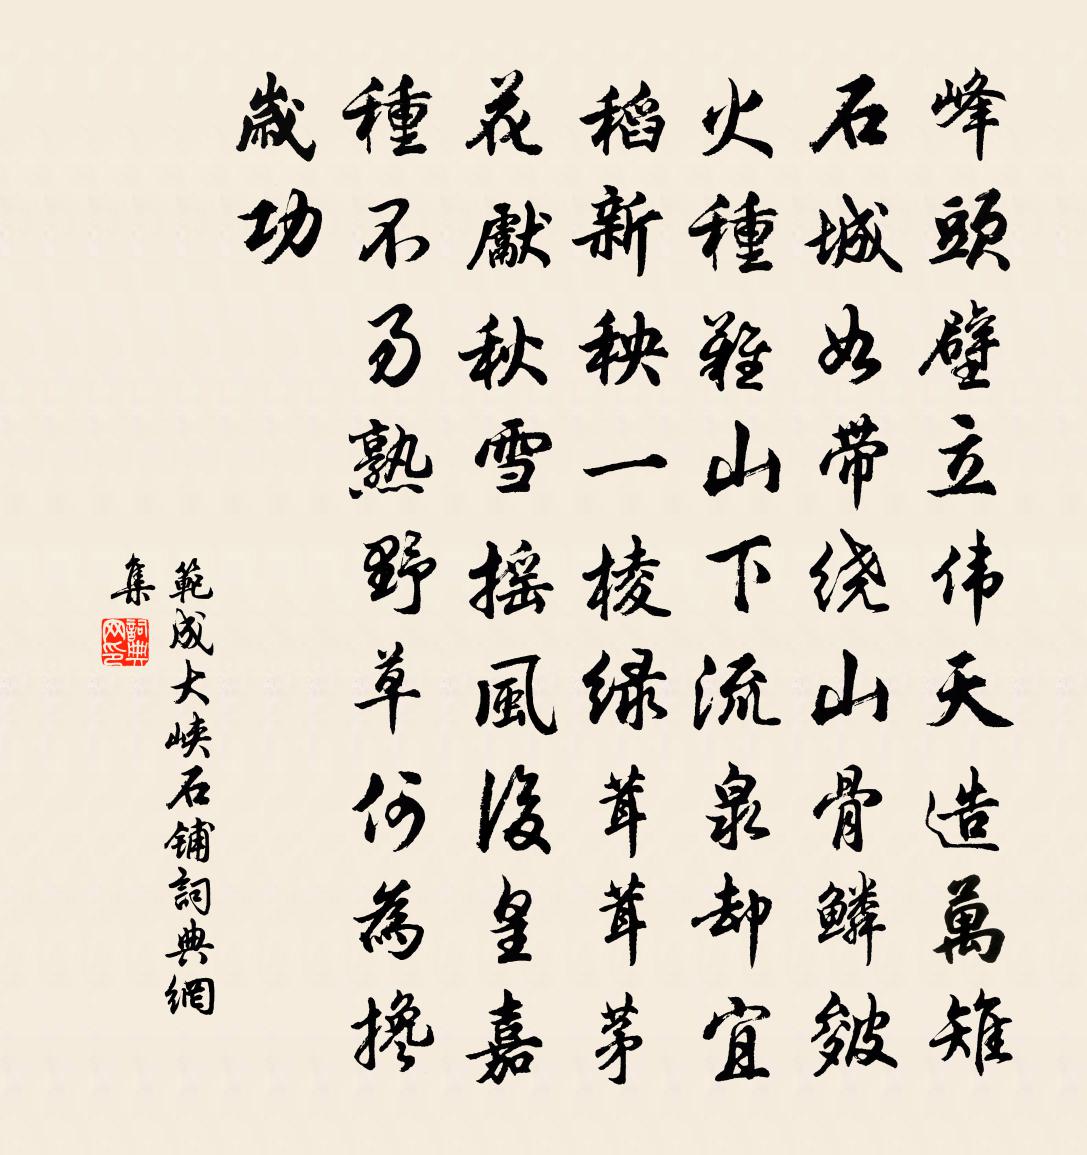 峰頭壁立伟天造萬雉
石城如带绕山骨鳞皴
火種難山下流泉却宜
稻新秧一棱绿茸茸茅
花獻秋雪摇風後皇嘉
種不易熟野草何為搀
歲功
範成大峽石铺詞典網
集
詞典网印